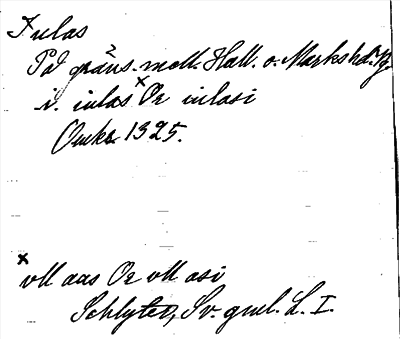 Iulas
På gräns. mell. Hall. o. Marks hd. Vg
i. iulas × Or iulasi
Omkr 1325.
× vll aas Or vll asi
Schlyter, Sv. gml. L. I.